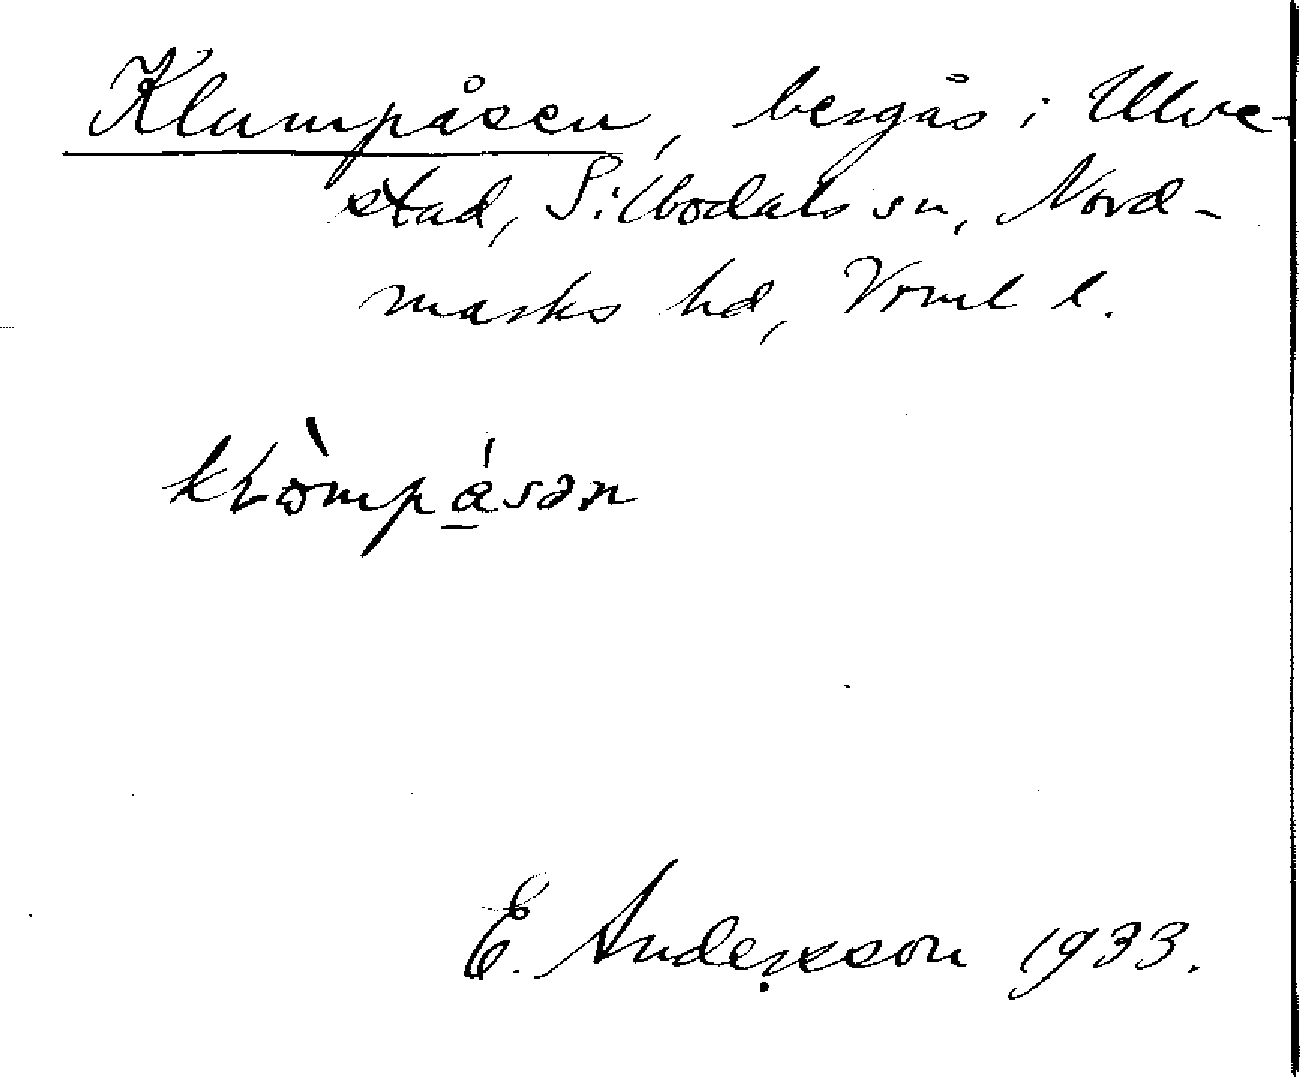 Klampåsen, bergås i Ulve-
stad, Silbodals sn, Nord-
marks hd, Vrml l.
kʟòmpásən
E. Andersson 1933.